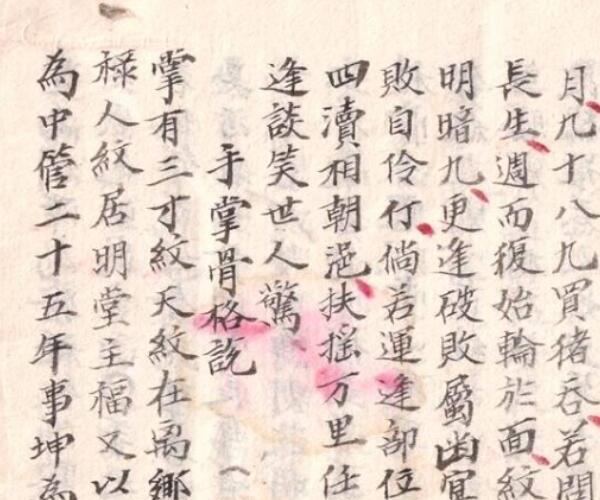 月九十八九買猪吞若問
長生週而復始輪於面紋
明暗九更逢破敗屬幽冥
敗自伶仃倘若運逢部位
四瀆相朝滟扶摇万里任
逢談笑世人驚
手掌骨格訖
掌有三才紋天紋在禹鄉
禄人紋居明堂主福又以
為中管二十五年事坤為